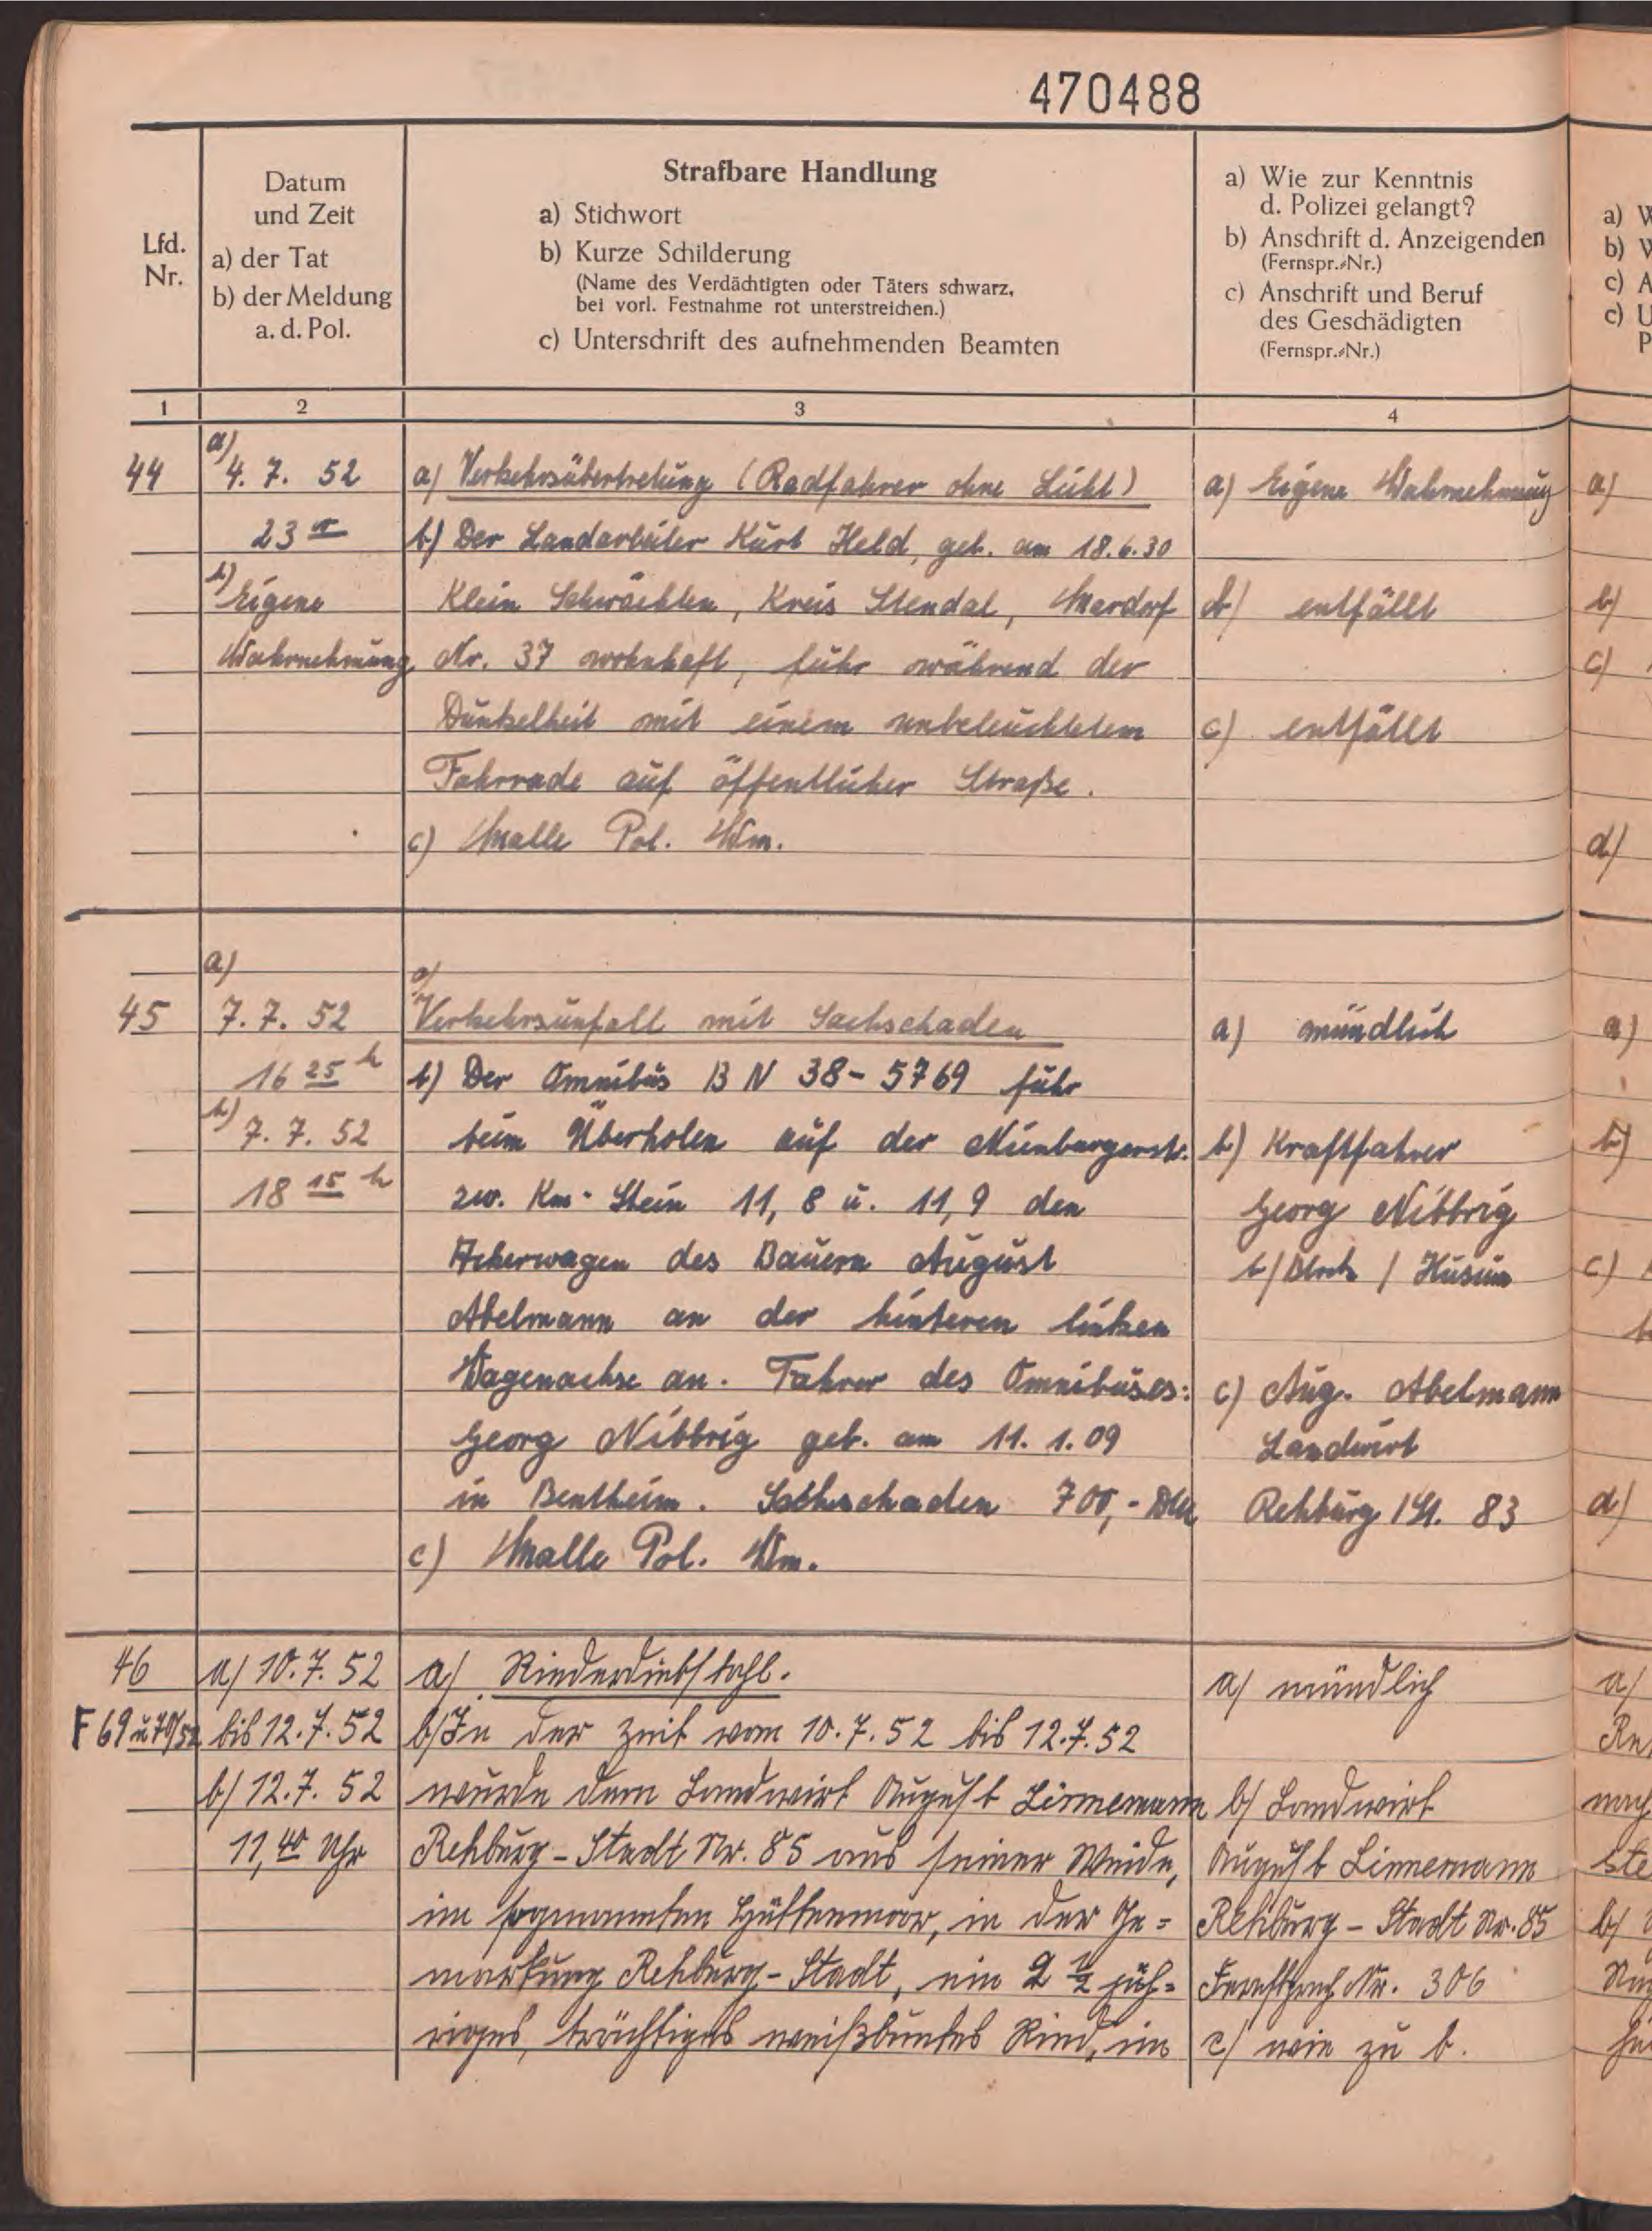 470488
Lfd.
Nr.
Datum
und Zeit
a) der Tat
b) der Meldung
a. d. Pol.
Strafbare Handlung
a) Stichwort
b) Kurze Schilderung
(Name des Verdächtigten oder Täters schwarz,
bei vorl. Festnahme rot unterstreichen.)
c) Unterschrift des aufnehmenden Beamten
a) Wie zur Kenntnis
d. Polizei gelangt?
b) Anschrift d. Anzeigenden
(Fernspr.-Nr.)
c) Anschrift und Beruf
des Geschädigten
(Fernspr.-Nr.)
1
2
3
4
44
a)
4. 7. 52
23
b)
Eigene
Wahrnehmung
a) Verkehrsübertretung (Radfahrer ohne Licht)
b) Der Landarbeiter Kurt Held, geb. am 18.6.30
Klein Schwächten, Kreis Stendal, Mardorf
Nr. 37 wohnhaft, fuhr während der
Dunkelheit mit einem unbeleuchtetem
Fahrrade auf öffentlicher Straße.
c) Malle Pol. Wm.
a) Eigene Wahrnehmung
b) entfällt
c) entfällt
45
a)
7. 7. 52
16 25 h
b)
7. 7. 52
18 15 h
a)
Verkehrsunfall mit Sachschaden
b) Der Omnibus BN 38-5769 fuhr
beim Überholen auf der Nienburgerstr.
zw. Km-Stein 11,8 u. 11,9 den
Ackerwagen des Bauern August
Abelmann an der hinteren linken
Wagenachse an. Fahrer des Omnibuses:
Georg Nibbrig geb. am 11.1.09
in Bentheim. Sachschaden 700,- DM
c) Malle Pol. Wm.
a) mündlich
b) Kraftfahrer
Georg Nibbrig
Husum
c) Aug. Abelmann
Landwirt
Rehburg /St. 83
46
F 69 u 70/52
a) 10.7.52
bis 12.7.52
b) 12.7.52
11,40 Uhr
a) Rinderdiebstahl.
b) In der Zeit vom 10.7.52 bis 12.7.52
wurde dem Landwirt August Linnemann
Rehburg-Stadt Nr. 85 aus seiner Weide,
im sogenannten Hüttenmoor, in der Ge=
markung Rehburg-Stadt, ein 2 1/2 jäh=
riges, trächtiges weißbuntes Rind, im
a) mündlich
b) Landwirt
August Linnemann
Rehburg-Stadt Nr. 85
Fernsprech Nr. 306
c) wie zu b.